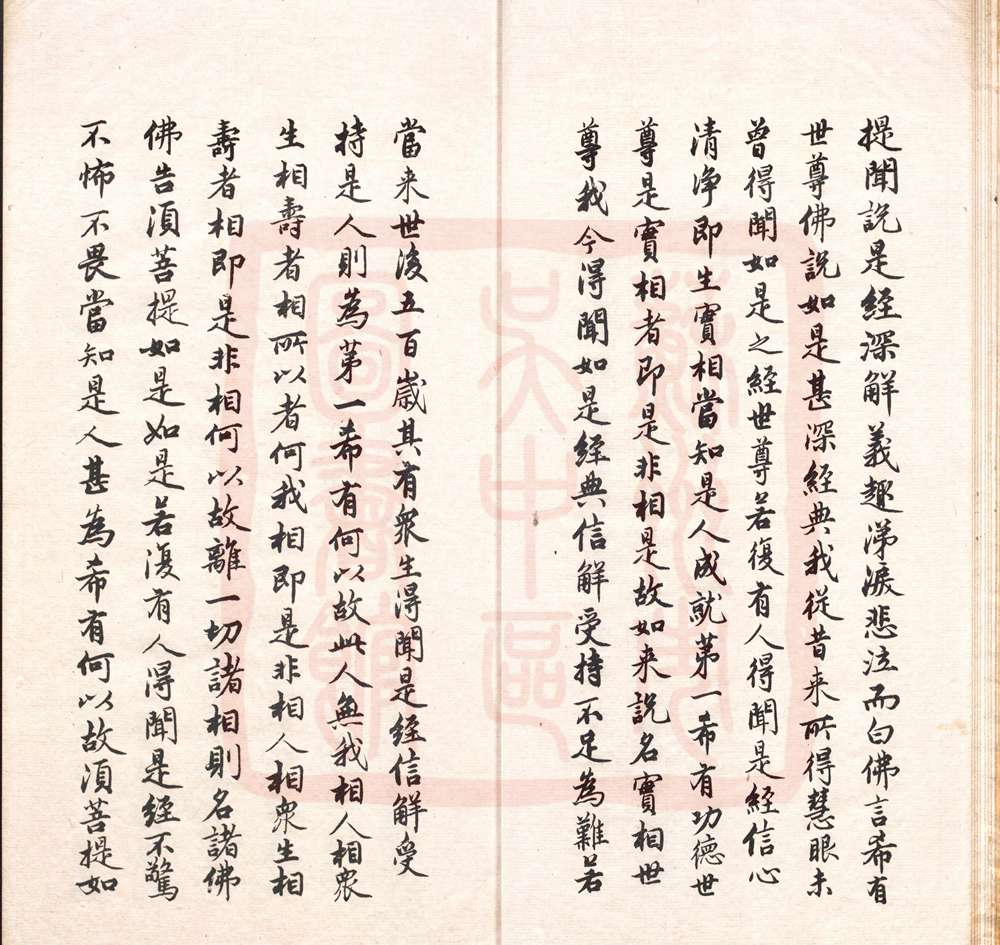 提聞説是经深解義趣涕淚悲泣而白佛言希有
世尊佛説如是甚深经典我従昔来所得慧眼未
曾得聞如是之经世尊若復有人得聞是经信心
清浄即生實相當知是人成就苐一希有功德世
尊是實相者即是非相是故如来説名實相世
尊我今得聞如是经典信解受持不足為難若
當来世後五百歲其有衆生得聞是经信解受
持是人則為苐一希有何以故此人無我相人相衆
生相壽者相所以者何我相即是非相人相衆生相
壽者相即是非相何以故離一切諸相則名諸佛
佛告須菩提如是如是若復有人得聞是经不驚
不怖不畏當知是人甚為希有何以故須菩提如
吴中區
圖書館